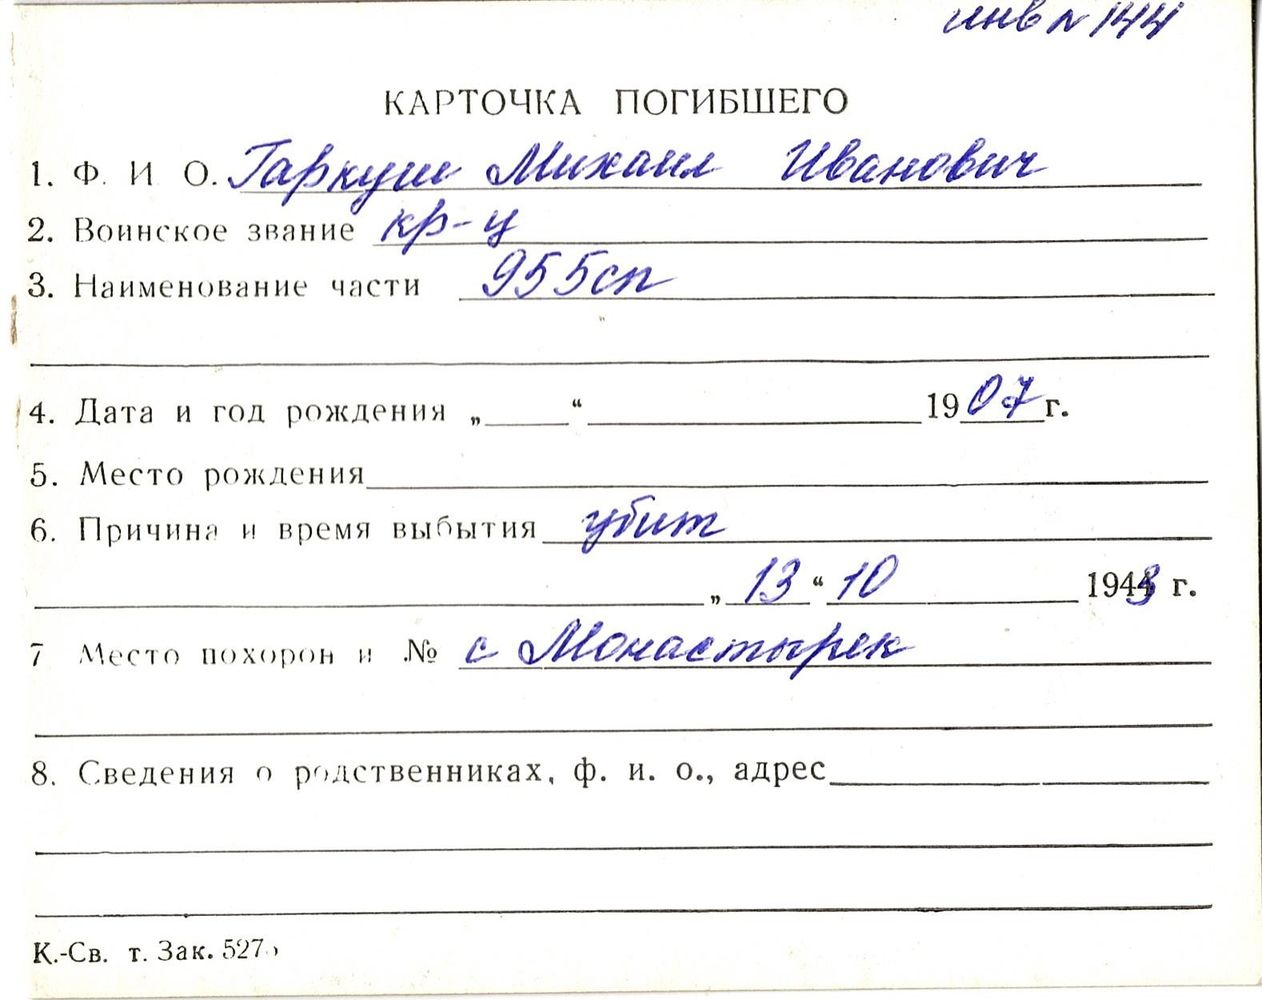 инв № 144
КАРТОЧКА ПОГИБШЕГО
1. Ф. И О. Гаркуш Михаил Иванович
2. Воинское звание кр-ц
3. Наименование части 955сп
4. Дата и год рождения „ “ 1907 г.
5. Место рождения
6. Причина и время выбытия убит
„ 13 “ 10 1943 г.
7 Место похорон и № с Монастырек
8. Сведения о родственниках, ф. и. о., адрес
К.-Св. т. Зак. 527